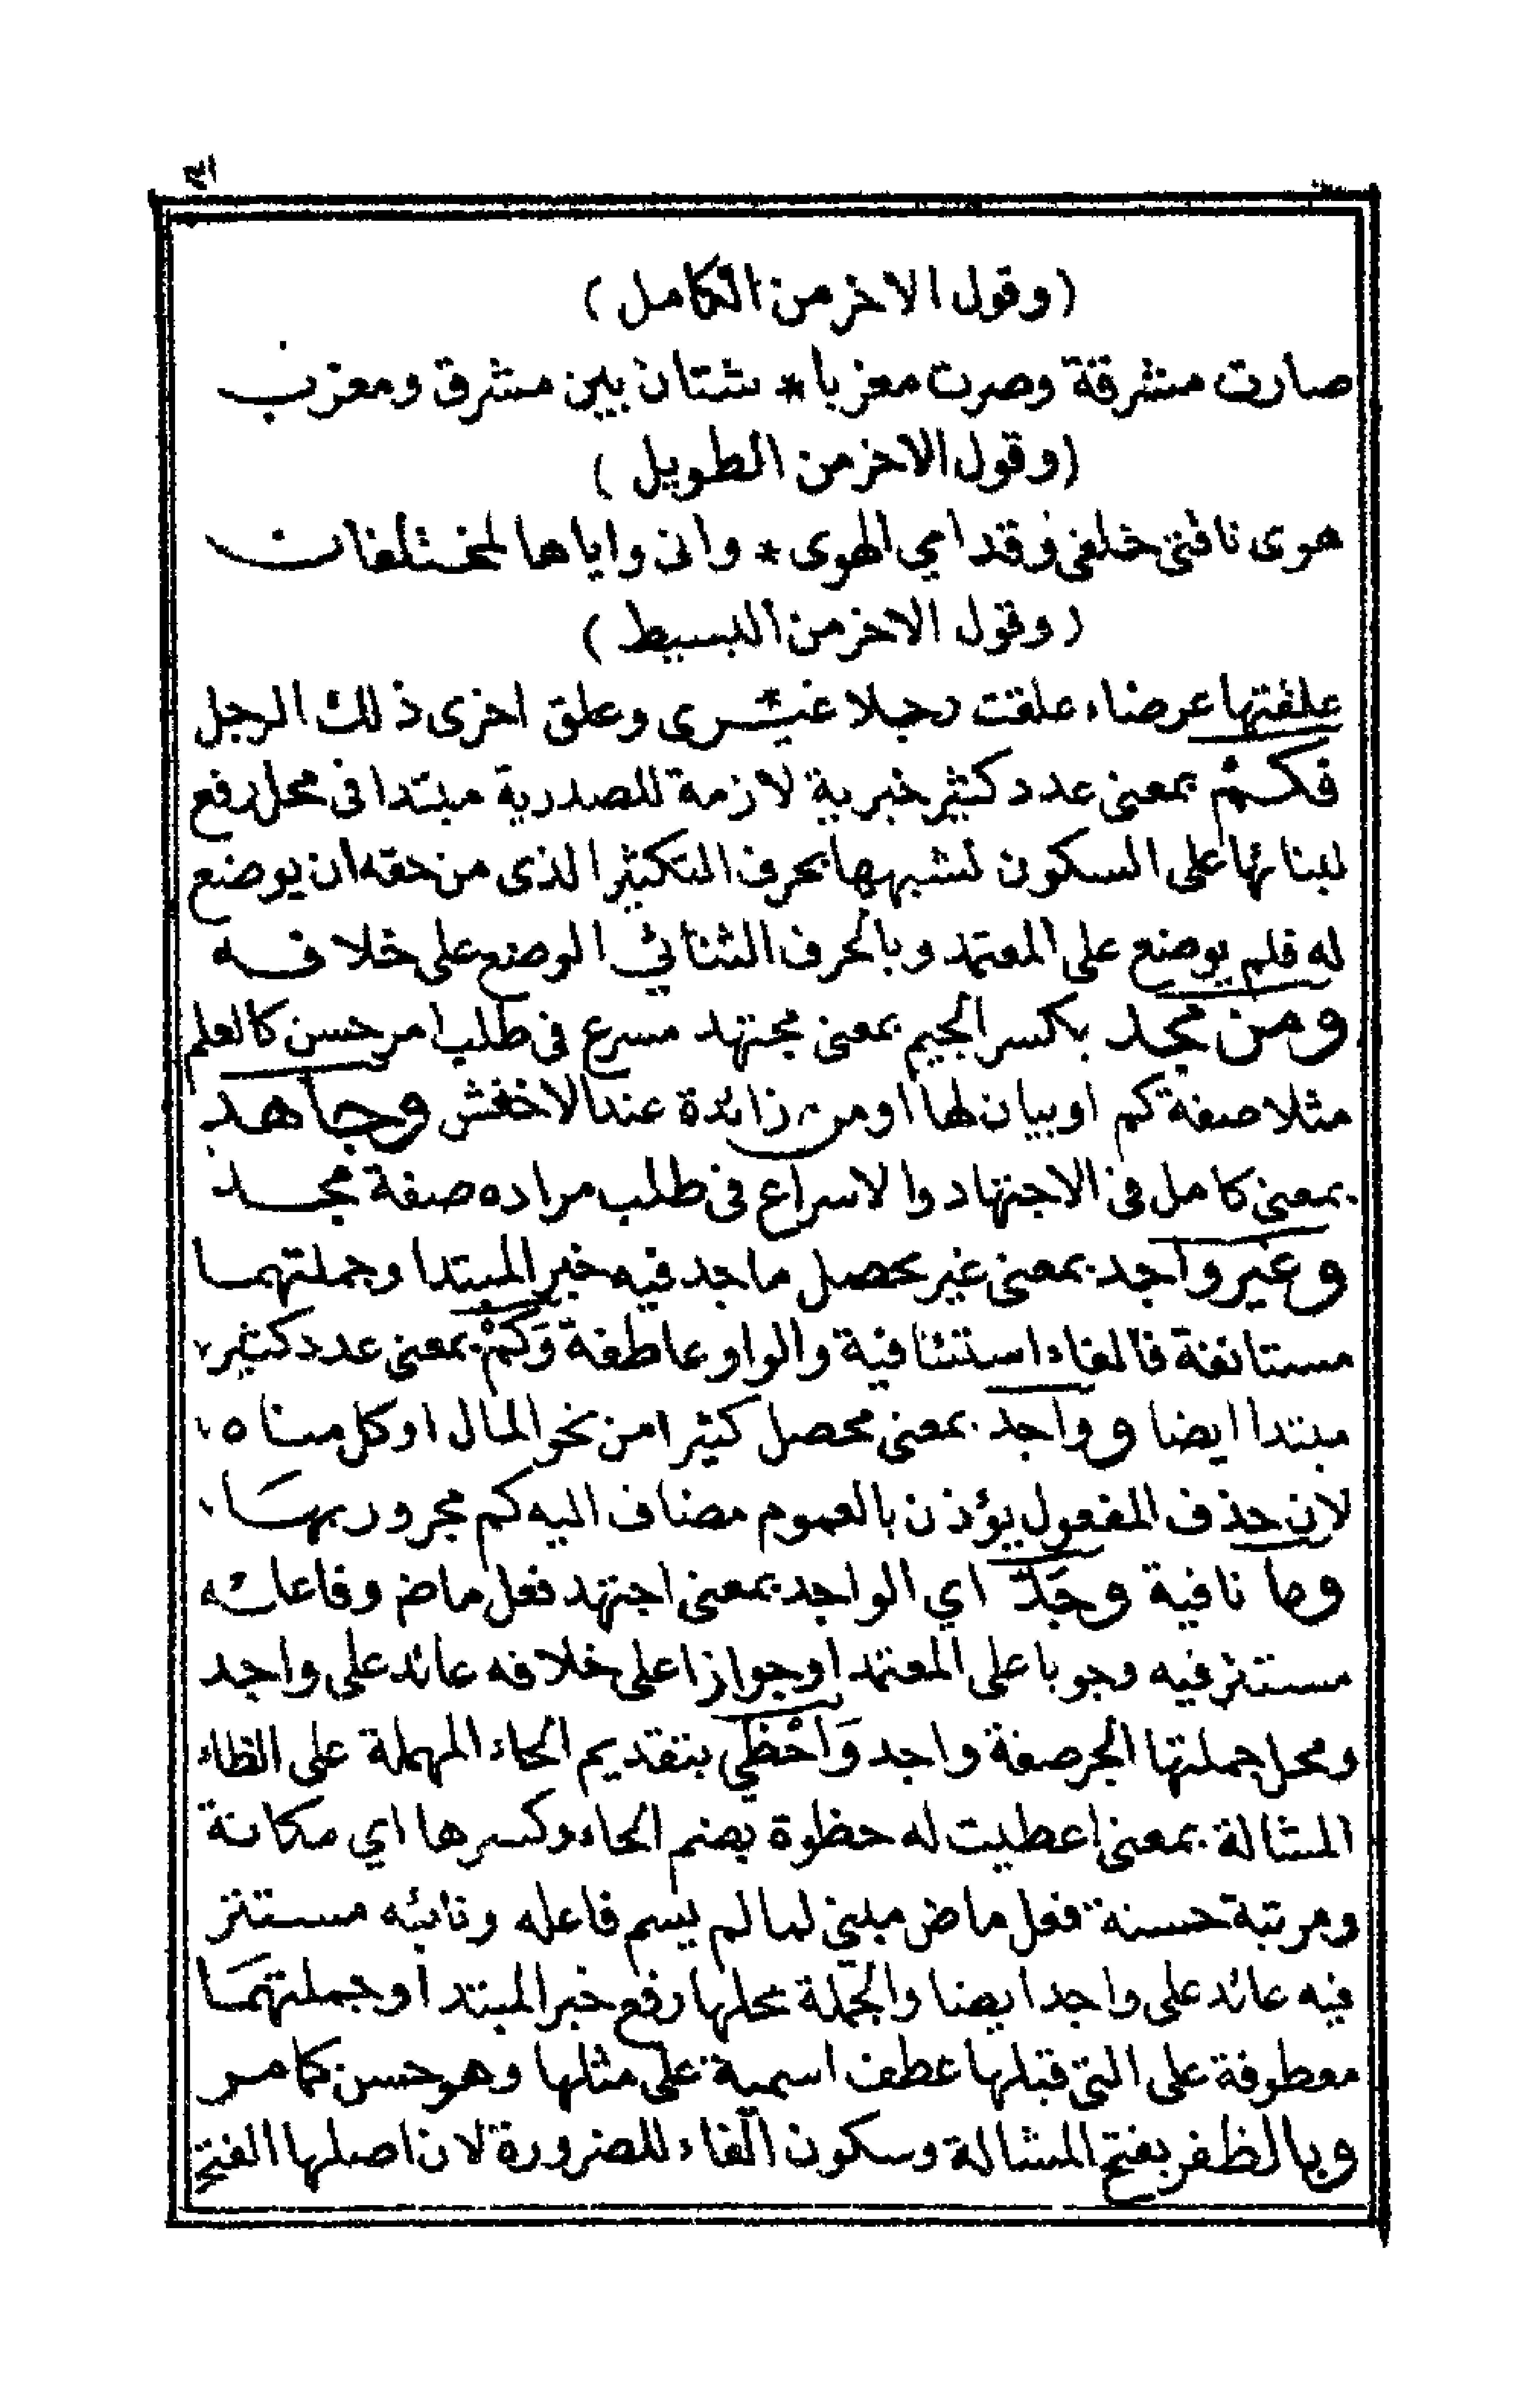 (وقول الاخر من الكامل)
صارت مشرقة وصرت مغربا * شتان بين مشرق ومغرب
(وقول الاخر من الطويل)
هوى ناقتى خلفى وقدامي الهوى * وانى واياها لمختلفان
(وقول الاخر من البسيط)
علقتها عرضاء علقت رجلا * غيرى وعلق اخرى ذلك الرجل
فكمْ بمعنى عدد كثير خبرية لازمة للصدرية مبتدا فى محل رفع
لبنائها على السكون لشبهها بحرف التكثير الذى من حقه ان يوضع
له فلم يوضع على المعتمد وبالحرف الثنائي الوضع على خلافه
ومن مجد بكسر الجيم بمعنى مجتهد مسرع فى طلب امر حسن كالعلم
مثلا صفة كم او بيان لها او من زائدة عند الاخفش وجاهد
بمعنى كامل فى الاجتهاد والاسراع فى طلب مراده صفة مجد
وغير واجد بمعنى غير محصل ما جد فيه خبر المبتدا وجملتهما
مستانفة فالفاء استئنافية والواو عاطفة وَكَمْ بمعنى عدد كثير
مبتدا ايضا وواجد بمعنى محصل كثيرا من نحو المال او كل مناه
لان حذف المفعول يؤذن بالعموم مضاف اليه كم مجرور بهَا
وما نافية وجَدَّ اي الواجد بمعنى اجتهد فعل ماض وفاعله
مستتر فيه وجوبا على المعتمد او جوازا على خلافه عائد على واجد
ومحل جملتها الجر صفة واجد وَاحْظَي بتقديم الحاء المهملة على الظاء
المشالة بمعنى اعطيت له حظوة بضم الحاء وكسرها اي مكانة
ومرتبة حسنة فعل ماض مبني لما لم يسم فاعله ونائبه مستتر
فيه عائد على واجد ايضا والجملة محلها رفع خبر المبتدا وجملتهمَا
معطوفة على التى قبلها عطف اسمية على مثلها وهو حسن كما مر
وبالظفر بفتح المشالة وسكون الفاء للضرورة لان اصلها الفتح